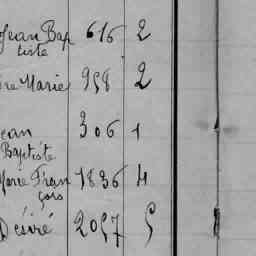 Jean Bap 616 2
tiste
re Marie 958 2
ean 306 1
Baptiste
Marie Fran 1836 4
çois
Désiré 2057 5